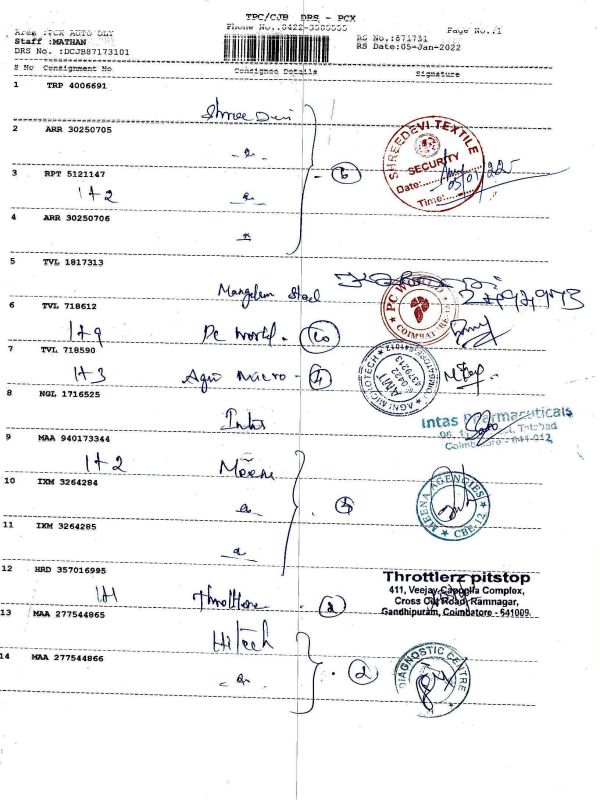 TPC/CJB DRS - PCX
Area :PCX AUTO DLY
Staff :MATHAN
DRS No. :DCJB87173101
RS No.:871731
RS Date:05-Jan-2022
Page No./1
S No Consignment No Consignee Details Signature
1 TRP 4006691
Shree Devi
2 ARR 30250705
SHREEDEVI TEXTILE
SECURITY
Date:
05/01/22
Time:
3 RPT 5121147
1+2
6
4 ARR 30250706
5 TVL 1817313
Steel
6 TVL 718612
PC WORLD
COIMBATORE
1+9 Pc World. 10
7 TVL 718590
1+3 Agni Micro - 4
AGNI MICROTECH
AMT
0422
4379213
8 NGL 1716525
Intas
Intas Pharmaceuticals
9 MAA 940173344
1+2 Meena
10 IXM 3264284
MEENA AGENCIES
CBE-12
11 IXM 3264285
12 HRD 357016995
Throttlerz pitstop
411, Veejay Cappella Complex,
Cross Cut Road, Ramnagar,
Gandhipuram, Coimbatore - 641009.
1+1 2
13 MAA 277544865
Hitech
14 MAA 277544866
2
DIAGNOSTIC CENTRE